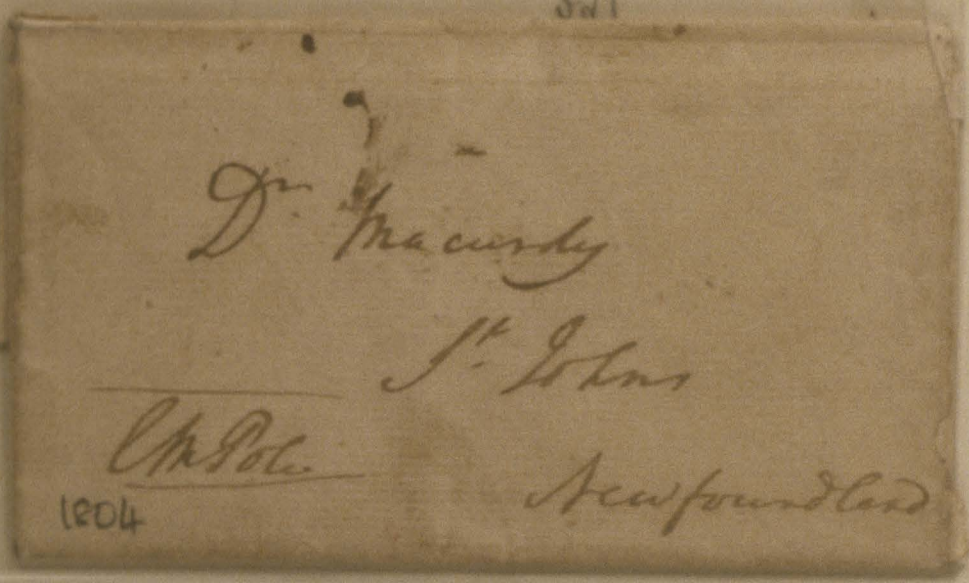 Dr Macurdy
St. Johns
Newfoundland
C M Pole
1804